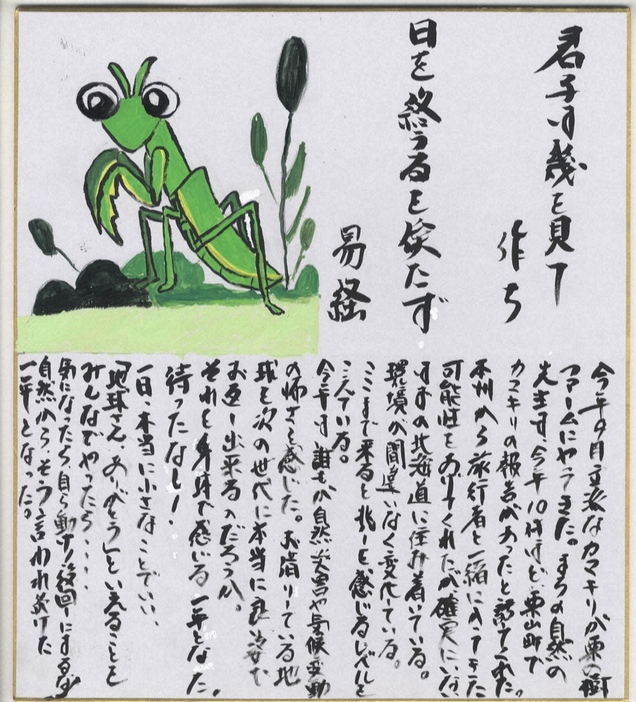 君子は幾を見て
作ち
日を終うるを俟たず
易経
今年9月立派なカマキリが栗の樹
ファームにやってきた。まちの自然の
先生は、今年10件ほど栗山町で
カマキリの報告があったと話してくれた。
本州から旅行者と一緒に入ってきた
可能性をあげてくれたが確実にいない
はずの北海道に住み着いている。
環境が間違いなく変化している。
ここまで来ると兆しを感じるレベルを
こえている。
今年は、誰もが自然災害や気候変動
の怖さを感じた。お借りしている地
球を次の世代に本当に良い姿で
お返し出来るのだろうか。
それを身身で感じる一年となった。
待ったなし!
一日、本当に小さなことでいい、
「地球さん、ありがとう」といえることを
みんなでやったら・・・
気になったら、自ら動け、後回しにするな
自然から、そう言われ続けた
一年となった。